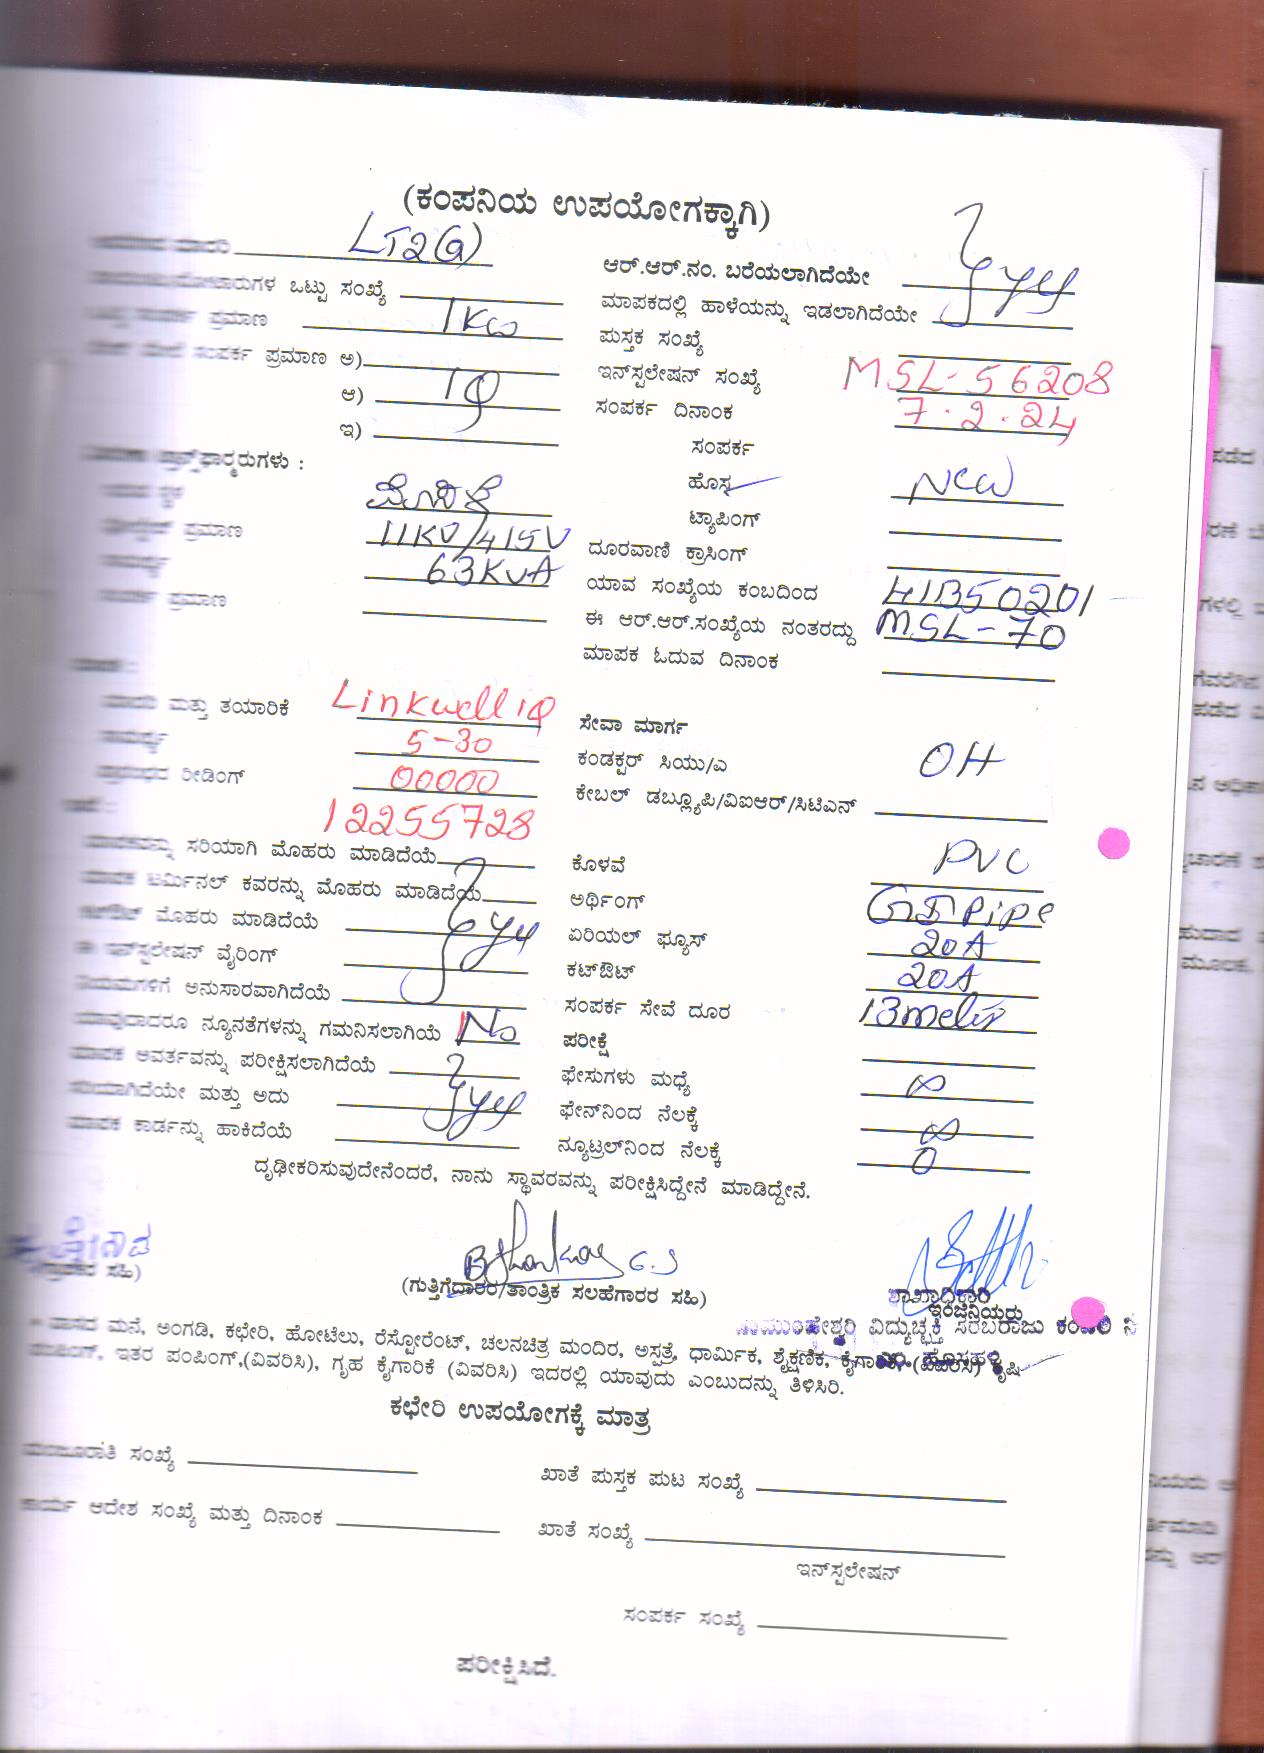 (ಕಂಪನಿಯ ಉಪಯೋಗಕ್ಕಾಗಿ)
LT2(a)
ಒಟ್ಟು ಸಂಖ್ಯೆ
ಪ್ರಮಾಣ 1KW
ಸಂಪರ್ಕ ಪ್ರಮಾಣ ಅ)
ಆ) 1φ
ಇ)
11KV/415V
ಪ್ರಮಾಣ
63KVA
ಪ್ರಮಾಣ
ಮತ್ತು ತಯಾರಿಕೆ Linkwell 1φ
5-30
ರೀಡಿಂಗ್ 00000
12255728
ಸರಿಯಾಗಿ ಮೊಹರು ಮಾಡಿದೆಯೆ
ಟರ್ಮಿನಲ್ ಕವರನ್ನು ಮೊಹರು ಮಾಡಿದೆಯೆ
ಮೊಹರು ಮಾಡಿದೆಯೆ
ಈ ಇನ್‌ಸ್ಟಲೇಷನ್ ವೈರಿಂಗ್
ನಿಯಮಗಳಿಗೆ ಅನುಸಾರವಾಗಿದೆಯೆ
ಯಾವುದಾದರೂ ನ್ಯೂನತೆಗಳನ್ನು ಗಮನಿಸಲಾಗಿಯೆ No
ಮಾಪಕ ಆವರ್ತವನ್ನು ಪರೀಕ್ಷಿಸಲಾಗಿದೆಯೆ
ಸರಿಯಾಗಿದೆಯೇ ಮತ್ತು ಅದು
ಮಾಪಕ ಕಾರ್ಡನ್ನು ಹಾಕಿದೆಯೆ
ಆರ್.ಆರ್.ನಂ. ಬರೆಯಲಾಗಿದೆಯೇ
ಮಾಪಕದಲ್ಲಿ ಹಾಳೆಯನ್ನು ಇಡಲಾಗಿದೆಯೇ
ಪುಸ್ತಕ ಸಂಖ್ಯೆ
ಇನ್‌ಸ್ಪಲೇಷನ್ ಸಂಖ್ಯೆ MSL-56208
ಸಂಪರ್ಕ ದಿನಾಂಕ 7.2.24
ಸಂಪರ್ಕ
ಹೊಸ New
ಟ್ಯಾಪಿಂಗ್
ದೂರವಾಣಿ ಕ್ರಾಸಿಂಗ್
ಯಾವ ಸಂಖ್ಯೆಯ ಕಂಬದಿಂದ 41B50201
ಈ ಆರ್.ಆರ್.ಸಂಖ್ಯೆಯ ನಂತರದ್ದು MSL-70
ಮಾಪಕ ಓದುವ ದಿನಾಂಕ
ಸೇವಾ ಮಾರ್ಗ
ಕಂಡಕ್ಟರ್ ಸಿಯು/ಎ OH
ಕೇಬಲ್ ಡಬ್ಲ್ಯೂಪಿ/ವಿಐಆರ್/ಸಿಟಿಎನ್
ಕೊಳವೆ PVC
ಅರ್ಥಿಂಗ್ GI Pipe
ಏರಿಯಲ್ ಫ್ಯೂಸ್ 20A
ಕಟ್‌ಔಟ್ 20A
ಸಂಪರ್ಕ ಸೇವೆ ದೂರ 13 meter
ಪರೀಕ್ಷೆ
ಫೇಸುಗಳು ಮಧ್ಯೆ ∞
ಫೇನ್‌ನಿಂದ ನೆಲಕ್ಕೆ ∞
ನ್ಯೂಟ್ರಲ್‌ನಿಂದ ನೆಲಕ್ಕೆ 0
ದೃಢೀಕರಿಸುವುದೇನೆಂದರೆ, ನಾನು ಸ್ಥಾವರವನ್ನು ಪರೀಕ್ಷಿಸಿದ್ದೇನೆ ಮಾಡಿದ್ದೇನೆ.
ಸಹಿ)
(ಗುತ್ತಿಗೆದಾರರ/ತಾಂತ್ರಿಕ ಸಲಹೆಗಾರರ ಸಹಿ)
ಶಾಖಾಧಿಕಾರಿ
ಇಂಜಿನಿಯರು
ವಿದ್ಯುಚ್ಛಕ್ತಿ ಸರಬರಾಜು ಕಂಪನಿ
ವಾಸದ ಮನೆ, ಅಂಗಡಿ, ಕಛೇರಿ, ಹೋಟೆಲು, ರೆಸ್ಟೋರೆಂಟ್, ಚಲನಚಿತ್ರ ಮಂದಿರ, ಆಸ್ಪತ್ರೆ, ಧಾರ್ಮಿಕ, ಶೈಕ್ಷಣಿಕ, (ವಿವರಿಸಿ) ಕೃಷಿ
ಇತರ ಪಂಪಿಂಗ್,(ವಿವರಿಸಿ), ಗೃಹ ಕೈಗಾರಿಕೆ (ವಿವರಿಸಿ) ಇದರಲ್ಲಿ ಯಾವುದು ಎಂಬುದನ್ನು ತಿಳಿಸಿರಿ.
ಕಛೇರಿ ಉಪಯೋಗಕ್ಕೆ ಮಾತ್ರ
ಮಂಜೂರಾತಿ ಸಂಖ್ಯೆ
ಖಾತೆ ಪುಸ್ತಕ ಪುಟ ಸಂಖ್ಯೆ
ಕಾರ್ಯ ಆದೇಶ ಸಂಖ್ಯೆ ಮತ್ತು ದಿನಾಂಕ
ಖಾತೆ ಸಂಖ್ಯೆ
ಇನ್‌ಸ್ಪಲೇಷನ್
ಸಂಪರ್ಕ ಸಂಖ್ಯೆ
ಪರೀಕ್ಷಿಸಿದೆ.